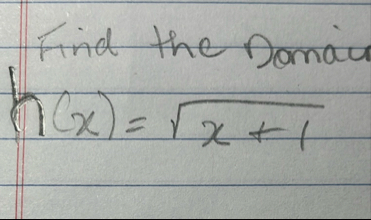 Find the Domain
h(x) = √x + 1